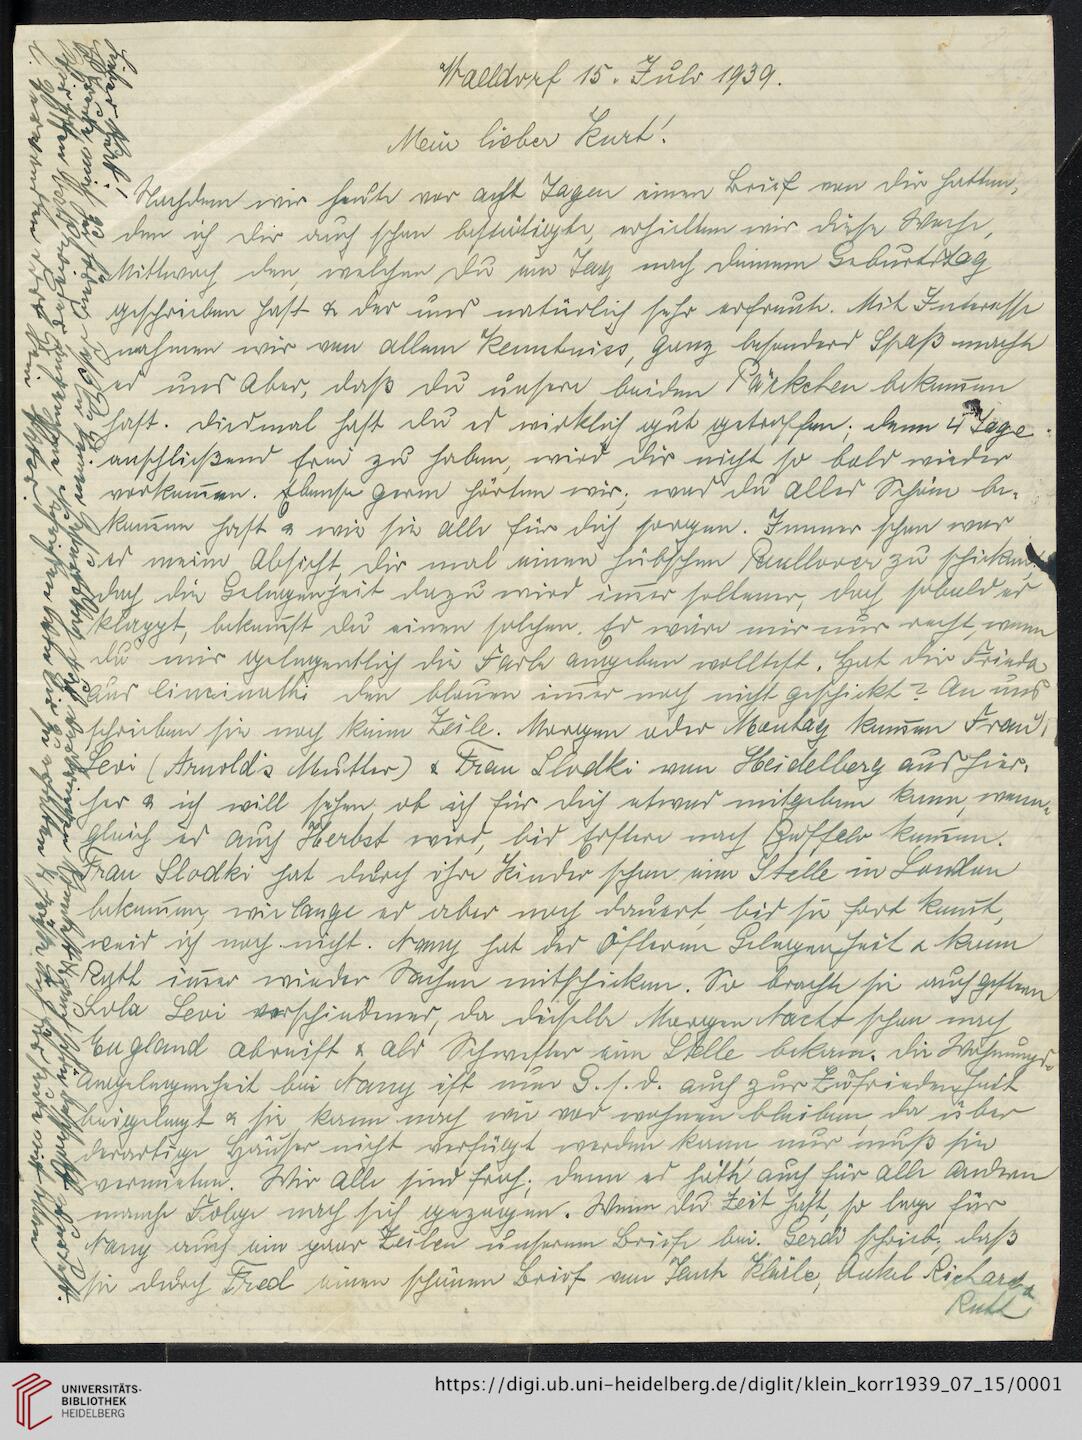 Walldorf 15. July 1939.
Mein lieber Kurt!
Nachdem wir heute vor acht Tagen einen Brief von dir hatten,
den ich Dir auch schon bestätigte, erhielten wir diese Woche,
Mittwoch den, welchen du am Tag nach deinem Geburtstag
geschrieben hast & der uns natürlich sehr erfreute. Mit Interesse
nahmen wir von allem Kenntniss, ganz besonders Spaß machte
es uns aber, daß du unsere beiden Päckchen bekommen
hast. Diesmal hast du es wirklich gut getroffen; denn 4 Tage
anschließend frei zu haben, wird dir nicht so bald wieder
vorkommen. Ebenso gern hörten wir, was du alles Schöne be-
kommen hast & wie sie alle für dich sorgen. Immer schon war
es meine Absicht, dir mal einen hübschen Pullover zu schicken,
doch die Gelegenheit dazu wird immer seltener, doch sobald es
klappt, bekommst du einen solchen. Es wäre mir nur recht, wenn
du mir gelegentlich die Farbe angeben wolltest. Hat die Frieda
aus Cincinatti den blauen immer noch nicht geschickt? An uns
schrieben sie noch keine Zeile. Morgen oder Montag kommen Frau
Levi (Arnold's Mutter) & Frau Slodki von Heidelberg aus hier-
her & ich will sehen ob ich für dich etwas mitgeben kann, wenn-
gleich es auch Herbst wird, bis Erstere nach Buffelo kommen.
Frau Slodki hat durch ihre Kinder schon eine Stelle in London
bekommen, wie lange es aber noch dauert, bis sie fort kommt,
weis ich noch nicht. Nany hat des Öfteren Gelegenheit & kann
Ruth immer wieder Sachen mitschicken. So brachte sie auch gestern
Lola Levi verschiedenes, da dieselbe Morgen Nacht schon nach
England abreist & als Schwester eine Stelle bekam. Die Wohnungs-
angelegenheit bei Nany ist nun G.s.d. auch zur Zufriedenheit
beigelegt & sie kann nach wie vor wohnen bleiben, da über
derartige Häuser nicht verfügt werden kann nur muß sie
vermieten. Wir alle sind froh, denn es hätte auch für alle andern
manche Folge nach sich gezogen. Wenn du Zeit hast, so lege für
Nany auch ein paar Zeilen unserem Briefe bei. Gerdi schrieb, daß
sie durch Fred einen schönen Brief von Tante Klärle, Onkel Richard &
Ruth
Lieber Kurt!
https://digi.ub.uni-heidelberg.de/diglit/klein_korr1939_07_15/0001
UNIVERSITÄTS-
BIBLIOTHEK
HEIDELBERG